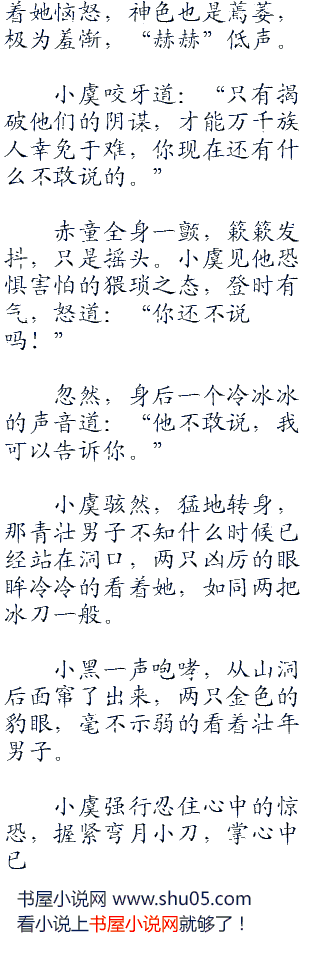 着她恼怒，神色也是蔫萎，
极为羞惭，“赫赫”低声。
小虞咬牙道：“只有揭
破他们的阴谋，才能万千族
人幸免于难，你现在还有什
么不敢说的。”
赤童全身一颤，簌簌发
抖，只是摇头。小虞见他恐
惧害怕的猥琐之态，登时有
气，怒道：“你还不说
吗！”
忽然，身后一个冷冰冰
的声音道：“他不敢说，我
可以告诉你。”
小虞骇然，猛地转身，
那青壮男子不知什么时候已
经站在洞口，两只凶厉的眼
眸冷冷的看着她，如同两把
冰刀一般。
小黑一声咆哮，从山洞
后面窜了出来，两只金色的
豹眼，毫不示弱的看着壮年
男子。
小虞强行忍住心中的惊
恐，握紧弯月小刀，掌心中
已
书屋小说网 www.shu05.com
看小说上书屋小说网就够了！